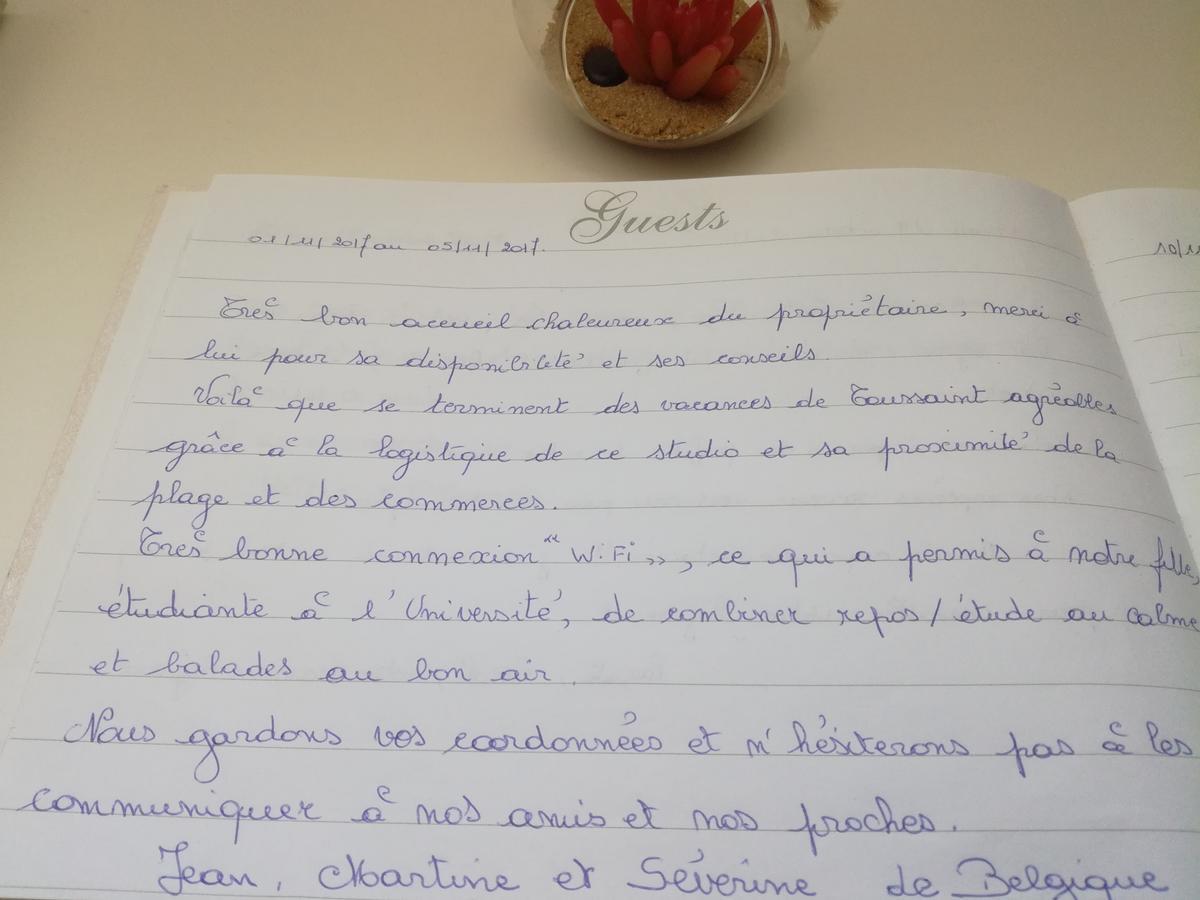 Guests
01/11/2017 au 05/11/2017.
10/11
Très bon accueil chaleureux du propriétaire, merci à
lui pour sa disponibilité et ses conseils.
Voilà que se terminent des vacances de Toussaint agréables
grâce à la logistique de ce studio et sa proximité de la
plage et des commerces.
Très bonne connexion "WiFi", ce qui a permis à notre fille,
étudiante à l'Université, de combiner repos/étude au calme
et balades au bon air.
Nous gardons vos coordonnées et n'hésiterons pas à les
communiquer à nos amis et nos proches.
Jean, Martine et Séverine de Belgique